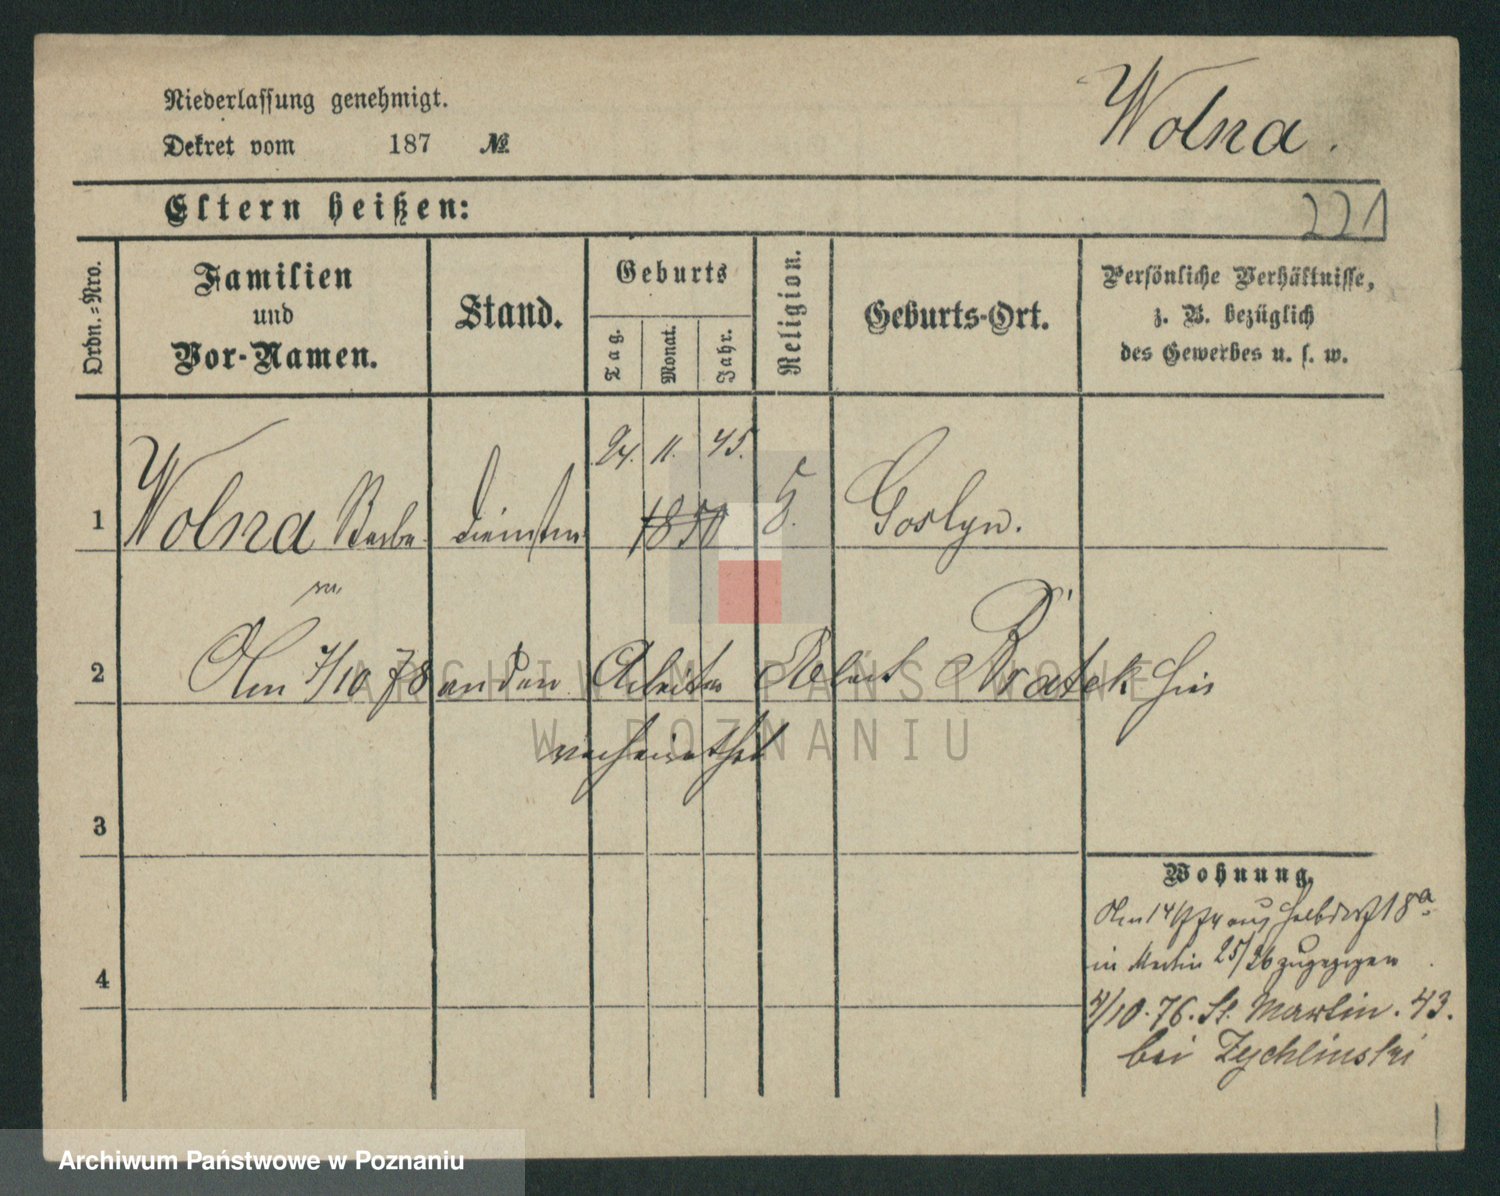 Niederlassung genehmigt.
Dekret vom 187 №
Wolna.
Eltern heißen:
221
Ordn.-Nro.
Familien
und
Vor-Namen.
Stand.
Geburts
Tag.
Monat.
Jahr.
Religion.
Geburts-Ort.
Persönliche Verhältnisse,
z. B. bezüglich
des Gewerbes u. s. w.
24. 11. 45.
1 Wolna Barba 1850 Goslyn.
2 Am 7/10 78 an den Arbeiter Bratek hier
verheirathet
3
4
Wohnung.
Am 14/ aus 18a
in 25/26 zugezogen
4/10. 76. St. Martin. 43.
bei Zychlinski
ARCHIWUM PAŃSTWOWE
W POZNANIU
Archiwum Państwowe w Poznaniu